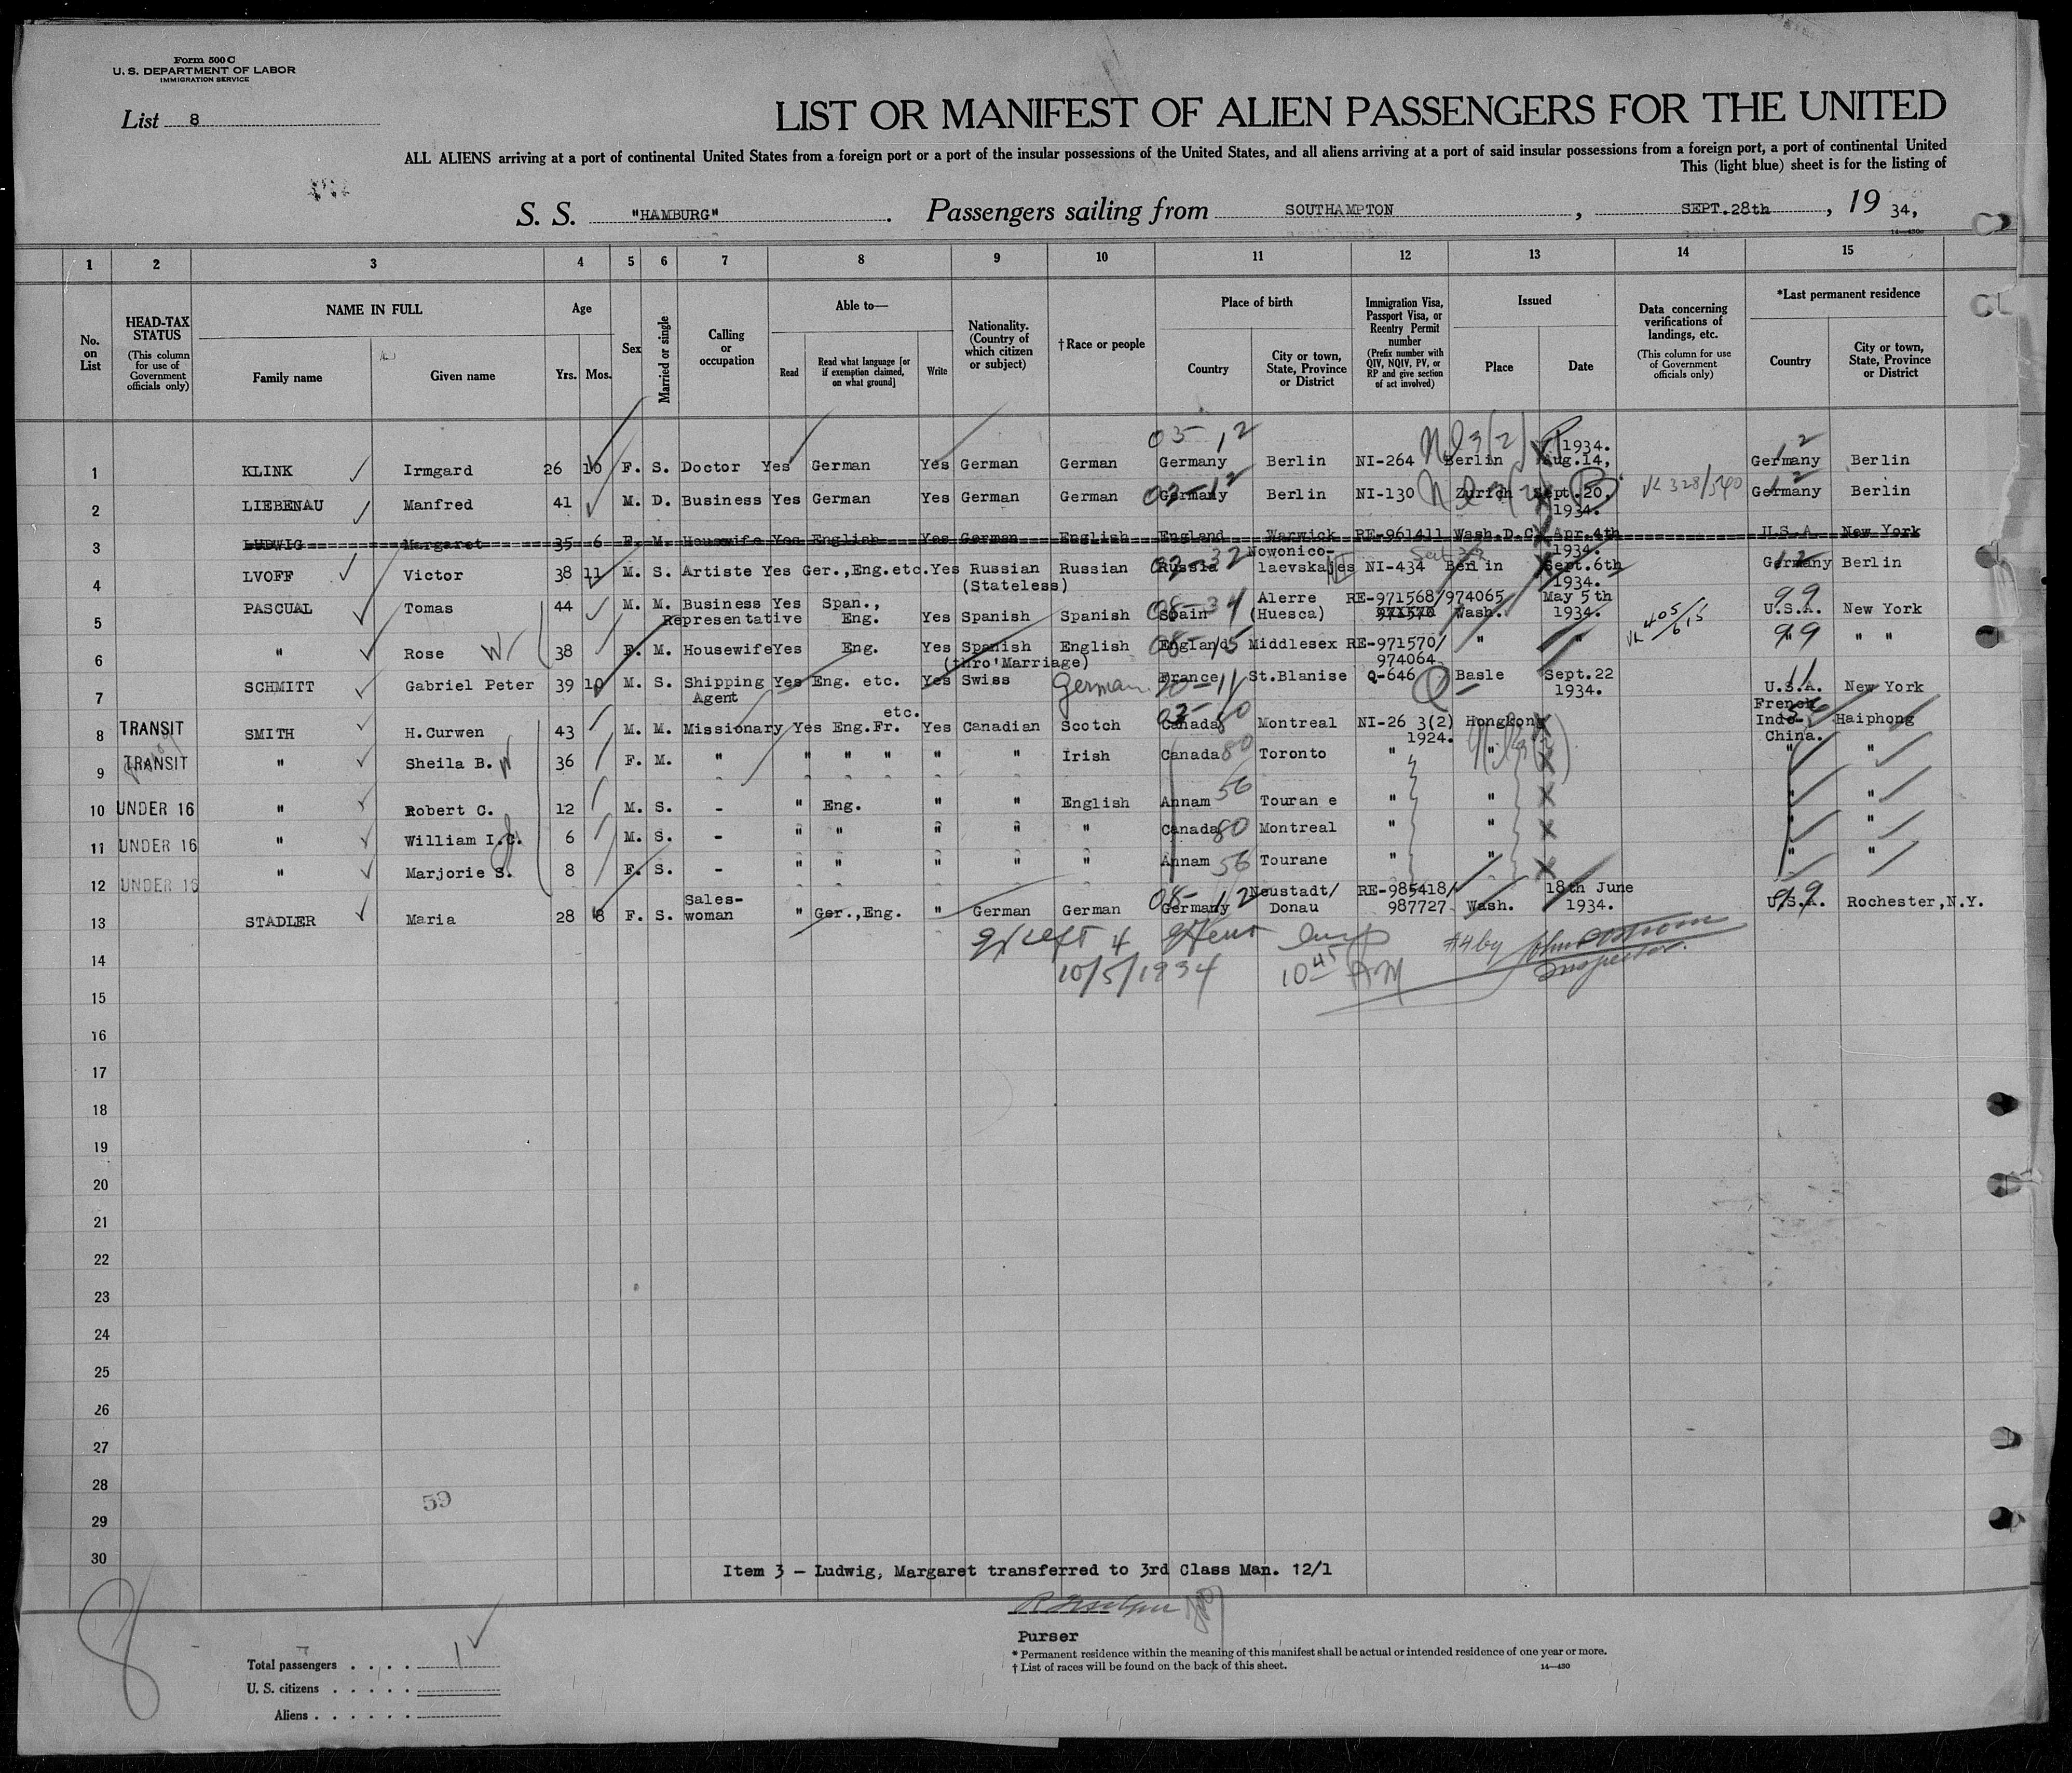 Form 500 C
U. S. DEPARTMENT OF LABOR
IMMIGRATION SERVICE
List 8
LIST OR MANIFEST OF ALIEN PASSENGERS FOR THE UNITED
ALL ALIENS arriving at a port of continental United States from a foreign port or a port of the insular possessions of the United States, and all aliens arriving at a port of said insular possessions from a foreign port, a port of continental United
This (light blue) sheet is for the listing of
S. S. "HAMBURG". Passengers sailing from SOUTHAMPTON, SEPT.28th, 19 34,
14—430
1 2 3 4 5 6 7 8 9 10 11 12 13 14 15
No. on List
HEAD-TAX STATUS (This column for use of Government officials only)
NAME IN FULL
Family name
Given name
Age
Yrs. Mos.
Sex
Married or single
Calling or occupation
Able to—
Read
Read what language [or if exemption claimed, on what ground]
Write
Nationality. (Country of which citizen or subject)
† Race or people
Place of birth
Country
City or town, State, Province or District
Immigration Visa, Passport Visa, or Reentry Permit number (Prefix number with QIV, NQIV, PV, or RP and give section of act involved)
Issued
Place
Date
Data concerning verifications of landings, etc. (This column for use of Government officials only)
*Last permanent residence
Country
City or town, State, Province or District
1 KLINK Irmgard 26 10 F. S. Doctor Yes German Yes German German 03-12 Germany Berlin NI-264 Berlin Aug.14, 1934. 12 Germany Berlin
2 LIEBENAU Manfred 41 M. D. Business Yes German Yes German German 03-12 Germany Berlin NI-130 Zurich Sept.20, 1934. VL 328/540 12 Germany Berlin
3 LUDWIG Margaret 35 6 F. M. Housewife Yes English Yes German English England Warwick RE-961411 Wash.D.C. Apr.4th 1934. U.S.A. New York
4 LVOFF Victor 38 11 M. S. Artiste Yes Ger.,Eng.etc. Yes Russian (Stateless) Russian 03-32 Russia Nowonico-laevska NI-434 Berlin Sept.6th 1934. 12 Germany Berlin
5 PASCUAL Tomas 44 M. M. Business Representative Yes Span., Eng. Yes Spanish Spanish 08-34 Spain Alerre (Huesca) RE-971568/974065 971570 Wash. May 5th 1934. 405/615 99 U.S.A. New York
6 " Rose W 38 F. M. Housewife Yes Eng. Yes Spanish (thro'Marriage) English 08-15 England Middlesex RE-971570/974064 " " 99 " " "
7 SCHMITT Gabriel Peter 39 10 M. S. Shipping Agent Yes Eng. etc. Yes Swiss German France St.Blanise Q-646 Q Basle Sept.22 1934. 11 U.S.A. New York
8 TRANSIT SMITH H.Curwen 43 M. M. Missionary Yes Eng.Fr. etc. Yes Canadian Scotch 03-80 Canada Montreal NI-26 3(2) 1924. Hongkong French Indo-China. Haiphong
9 TRANSIT " Sheila B. W 36 F. M. " " " " " " Irish Canada 80 Toronto " " " "
10 UNDER 16 " Robert C. 12 M. S. - " Eng. " " English Annam 56 Touran e " " " "
11 UNDER 16 " William I.C. 6 M. S. - " " " " " Canada 80 Montreal " " " "
12 UNDER 16 " Marjorie S. 8 F. S. - " " " " " Annam 56 Tourane " " " "
13 STADLER Maria 28 8 F. S. Sales-woman " Ger.,Eng. " German German 08-12 Germany Neustadt/Donau RE-985418/987727 Wash. 18th June 1934. 99 U.S.A. Rochester,N.Y.
14
10/5/1934 10 45 AM
Inspector.
15
16
17
18
19
20
21
22
23
24
25
26
27
28
59
29
30
Item 3 - Ludwig, Margaret transferred to 3rd Class Man. 12/1
8
Purser
Total passengers . . . .
U. S. citizens . . . . .
Aliens . . . . . .
* Permanent residence within the meaning of this manifest shall be actual or intended residence of one year or more.
† List of races will be found on the back of this sheet.
14—430